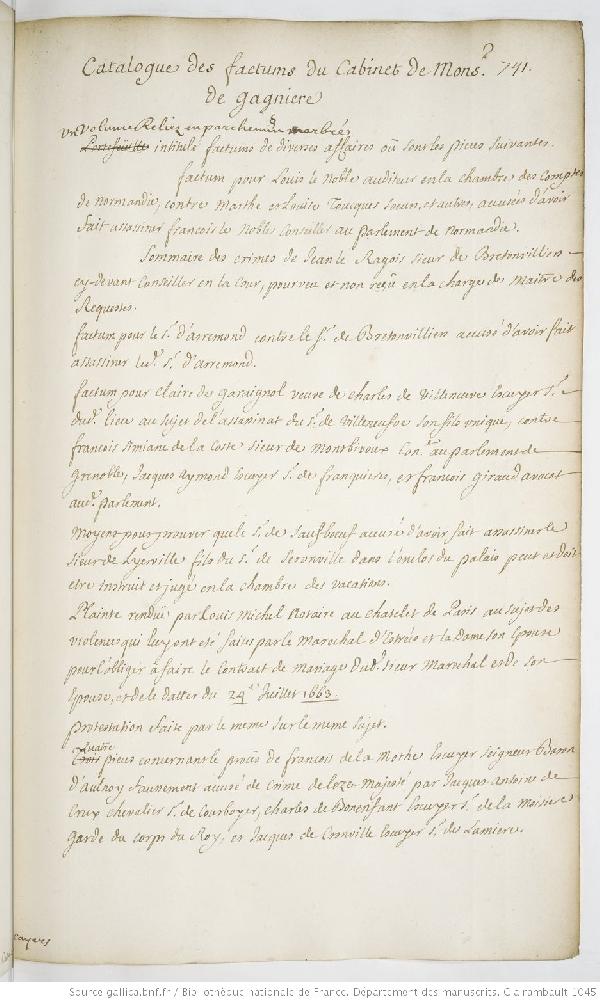 Catalogue des factums du Cabinet de Mons.r 741.
de gagniere
un Volume Reliez en parchemin marbré
Portefeuille intitulé factums de diverses affaires où sont les pieces suivantes.
factum pour Louis le Noble auditeur en la chambre des Comptes
de Normandie, contre Marthe et Louise Toucques soeurs, et autres, accusées d'avoir
fait assassiner francois le Noble Conseiller au Parlement de Normandie.
Sommaire des crimes de Jean le Ragois sieur de Bretonvillier
cy-devant Conseiller en la Cour, pourveu et non reçu en la charge de Maitre des
Requestes.
factum pour le S.r d'arremond contre le S.r de Bretonvillier accusé d'avoir fait
assassiner led.t S.r d'arremond.
factum pour Claire de garaignol veuve de Charles de Villeneuve Ecuyer S.r
dud.t lieu au sujet de l'assassinat du S.r de Villeneufve son fils unique, contre
francois Simiane de la Coste sieur de Montbivoux Con.er au parlement de
grenoble, Jacques aymond Ecuyer S.r de franquieres, et francois giraud avocat
aud.t parlement.
Moyens pour prouver que le S.r de Saufboeuf accusé d'avoir fait assassiner le
sieur de Lyerville fils du S.r de Seronville dans l'enclos du palais peut et doit
etre instruit et jugé en la chambre des vacations.
Plainte rendüe par Louis Michel Notaire au chatelet de Paris au sujet des
violences qui luy ont eté faites par le Marechal d'Estrées et la Dame son Epouse
pour l'obliger à faire le Contract de Mariage dud.t sieur Marechal et de son
Epouse, et de le datter du 24.e Juillet 1663.
protestation faite par le meme sur le meme sujet.
Quatre
Trois pieces concernant le procès de francois de la Mothe Ecuyer Seigneur Baron
d'aulnoy faussement accusé de Crime de leze-Majesté par Jacques antoine de
Crux chevalier S.r de Courboyer, Charles de Bonenfant Ecuyer S.r de la Moisiere
garde du corps du Roy, et Jacques de Cronville Ecuyer S.r de Lamiere.
Source gallica.bnf.fr / Bibliothèque nationale de France. Département des manuscrits. Clairambault 1045